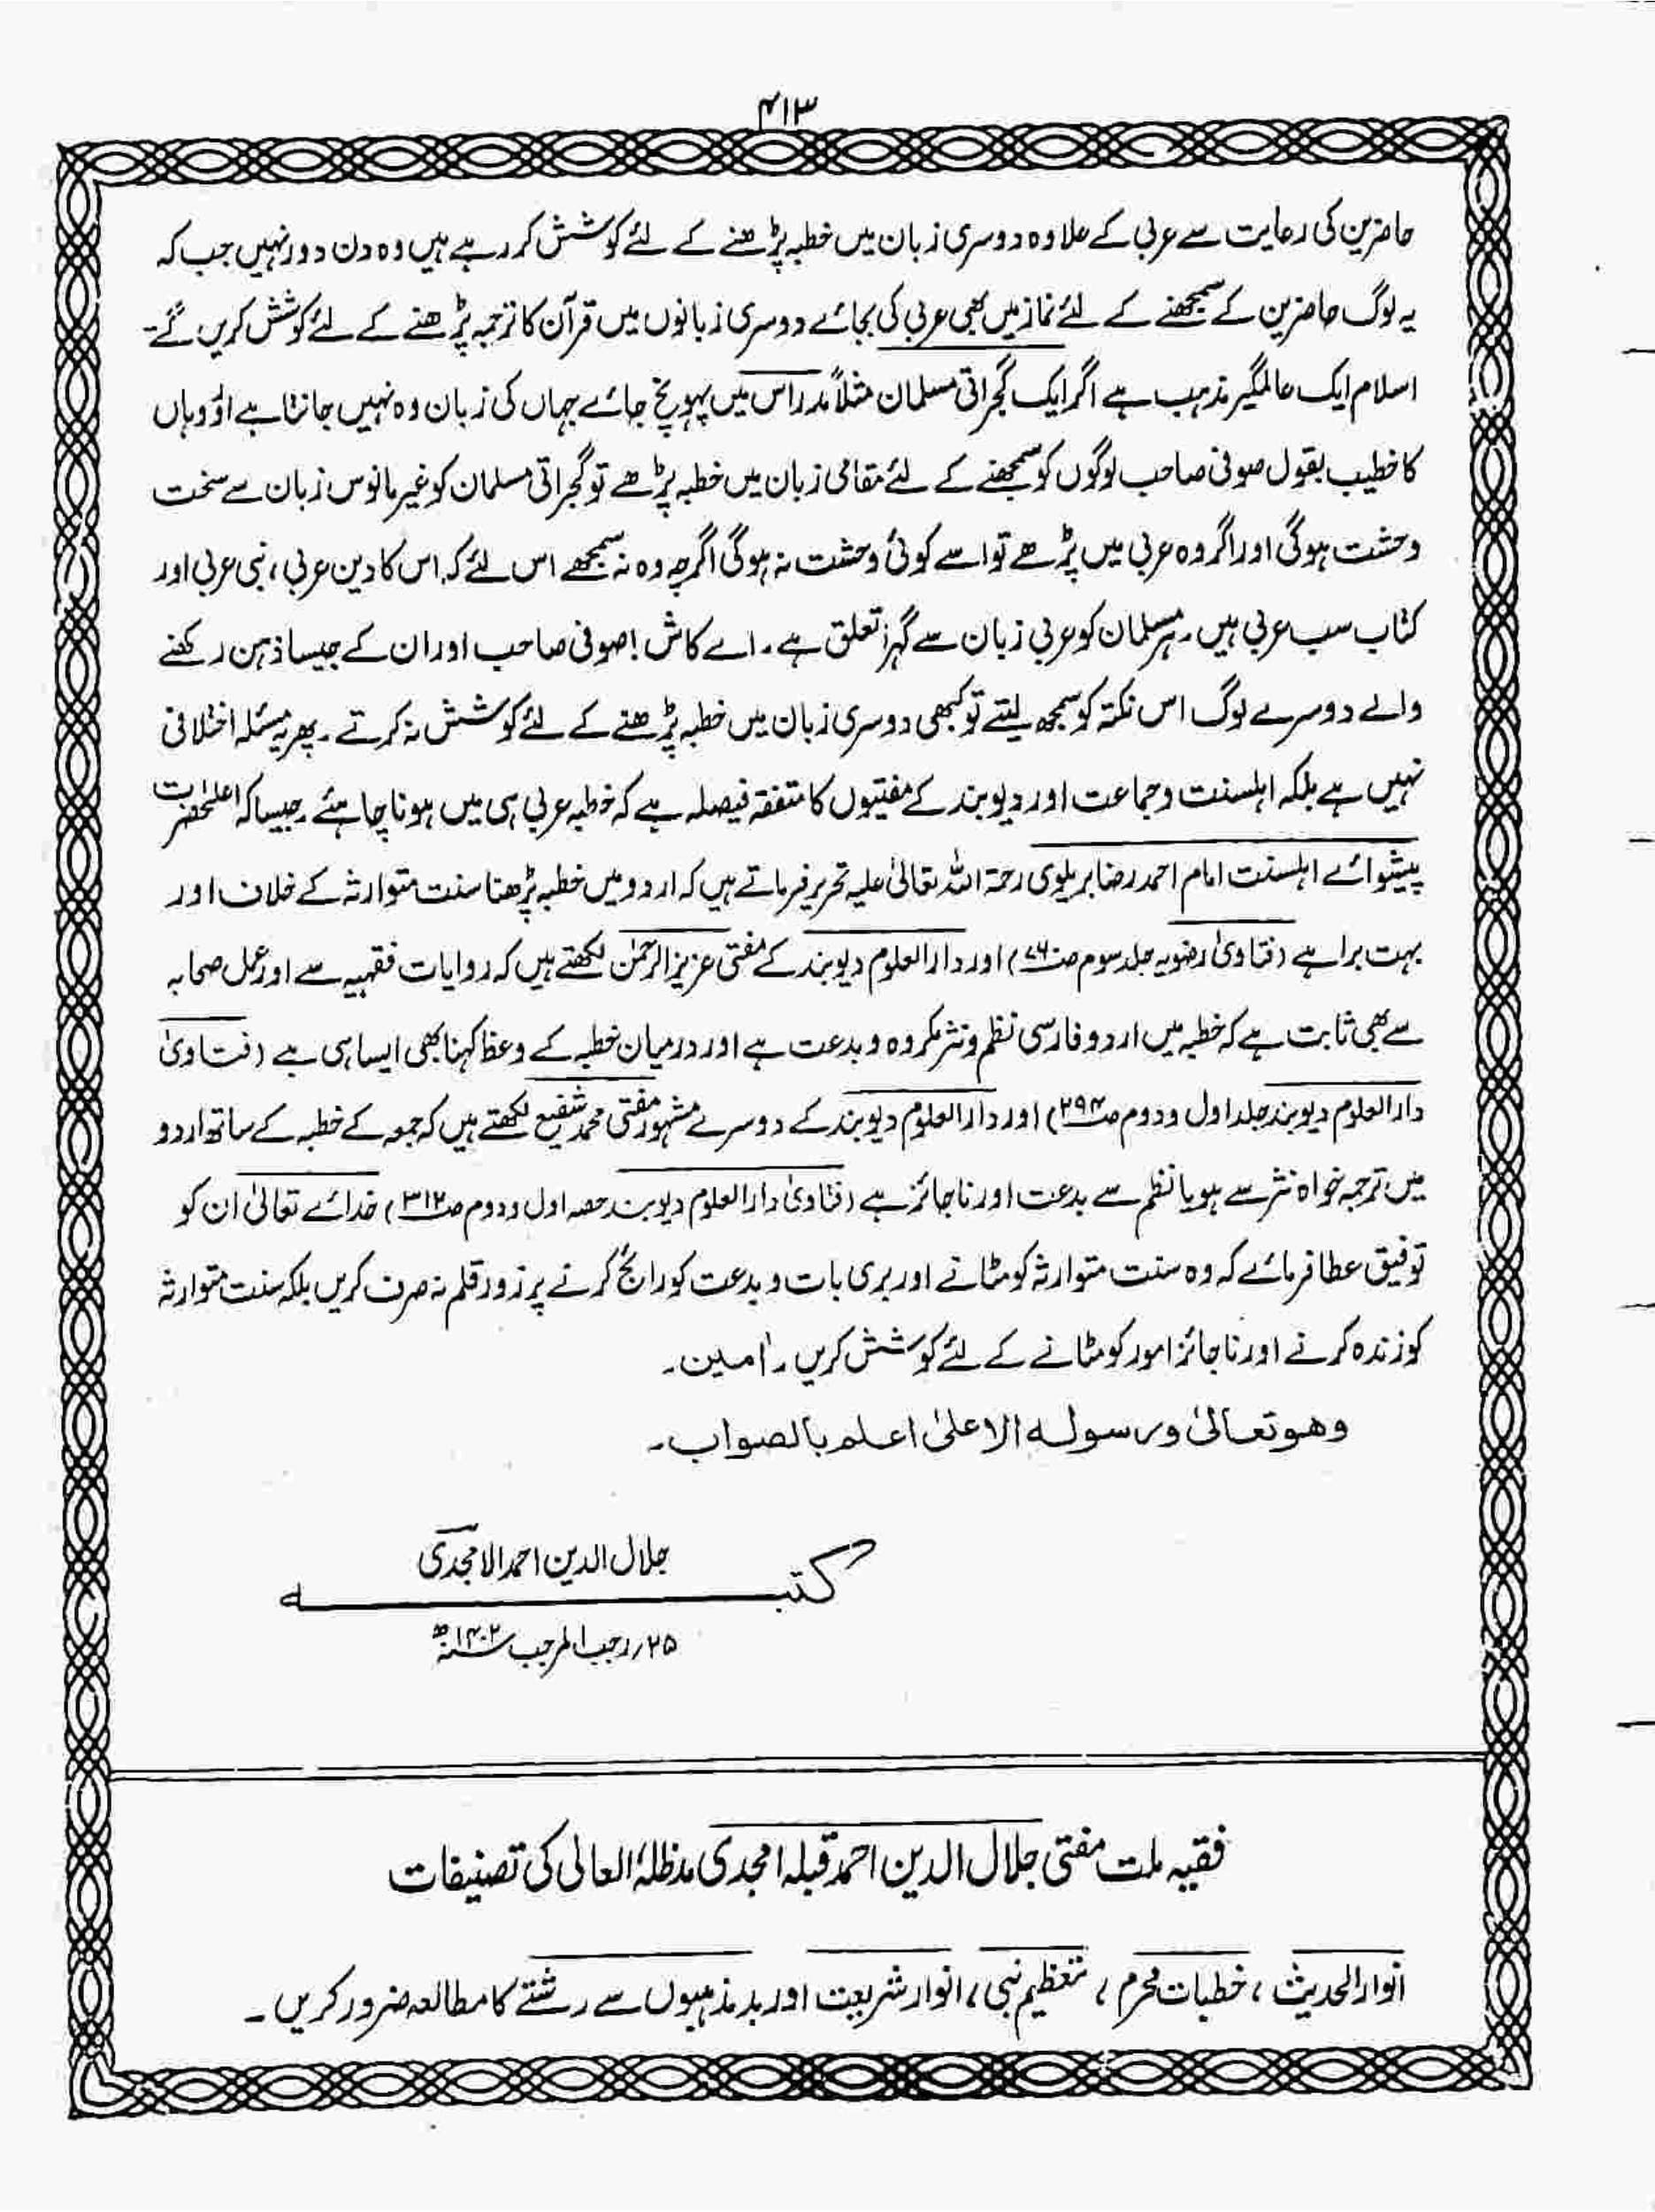 ۴۱۳
حاضرین کی رعایت سے عربی کے علاوہ دوسری زبان میں خطبہ پڑھنے کے لئے کوشش کر رہے ہیں وہ دن دور نہیں جب کہ
یہ لوگ حاضرین کے سمجھنے کے لئے نماز میں بھی عربی کی بجائے دوسری زبانوں میں قرآن کا ترجمہ پڑھنے کے لئے کوشش کریں گے۔
اسلام ایک عالمگیر مذہب ہے اگر ایک گجراتی مسلمان مثلاً مدراس میں پہونچ جائے جہاں کی زبان وہ نہیں جانتا ہے اور وہاں
کا خطیب بقول صوفی صاحب لوگوں کو سمجھنے کے لئے مقامی زبان میں خطبہ پڑھے تو گجراتی مسلمان کو غیر مانوس زبان سے سخت
وحشت ہوگی اور اگر وہ عربی میں پڑھے تو اسے کوئی وحشت نہ ہوگی اگرچہ وہ نہ سمجھے اس لئے کہ اس کا دین عربی، نبی عربی اور
کتاب سب عربی ہیں۔ ہر مسلمان کو عربی زبان سے گہرا تعلق ہے۔ اے کاش! صوفی صاحب اور ان کے جیسا ذہن رکھنے
والے دوسرے لوگ اس نکتہ کو سمجھ لیتے تو کبھی دوسری زبان میں خطبہ پڑھنے کے لئے کوشش نہ کرتے۔ پھر یہ مسئلہ اختلافی
نہیں ہے بلکہ اہلسنت وجماعت اور دیوبند کے مفتیوں کا متفقہ فیصلہ ہے کہ خطبہ عربی ہی میں ہونا چاہئے۔ جیسا کہ اعلیٰحضرت
پیشوائے اہلسنت امام احمد رضا بریلوی رحمۃ اللہ تعالیٰ علیہ تحریر فرماتے ہیں کہ اردو میں خطبہ پڑھنا سنت متوارثہ کے خلاف اور
بہت برا ہے (فتاویٰ رضویہ جلد سوم ص) اور دارالعلوم دیوبند کے مفتی عزیز الرحمٰن لکھتے ہیں کہ روایات فقہیہ سے اور عمل صحابہ
سے بھی ثابت ہے کہ خطبہ میں اردو فارسی نظم و نثر مکروہ و بدعت ہے اور درمیان خطبہ کے وعظ کہنا بھی ایسا ہی ہے (فتاویٰ
دارالعلوم دیوبند جلد اول ودوم ص۲۹۴) اور دارالعلوم دیوبند کے دوسرے مشہور مفتی محمد شفیع لکھتے ہیں کہ جمعہ کے خطبہ کے ساتھ اردو
میں ترجمہ خواہ نثر سے ہو یا نظم سے بدعت اور ناجائز ہے (فتاویٰ دارالعلوم دیوبند حصہ اول ودوم ص۳۱۲) خدائے تعالیٰ ان کو
توفیق عطا فرمائے کہ وہ سنت متوارثہ کو مٹانے اور بری بات و بدعت کو رائج کرنے پر زور قلم نہ صرف کریں بلکہ سنت متوارثہ
کو زندہ کرنے اور ناجائز امور کو مٹانے کے لئے کوشش کریں۔ اٰمین۔
وھو تعالیٰ ورسولہ الاعلیٰ اعلم بالصواب۔
جلال الدین احمد الامجدی
کتبہ
۲۵؍ رجب المرجب سنہ ۱۴۰۲ھ
فقیہ ملت مفتی جلال الدین احمد قبلہ امجدی مدظلہٗ العالی کی تصنیفات
انوار الحدیث، خطبات محرم، تعظیم نبی، انوار شریعت اور بدمذہبوں سے رشتے کا مطالعہ ضرور کریں۔